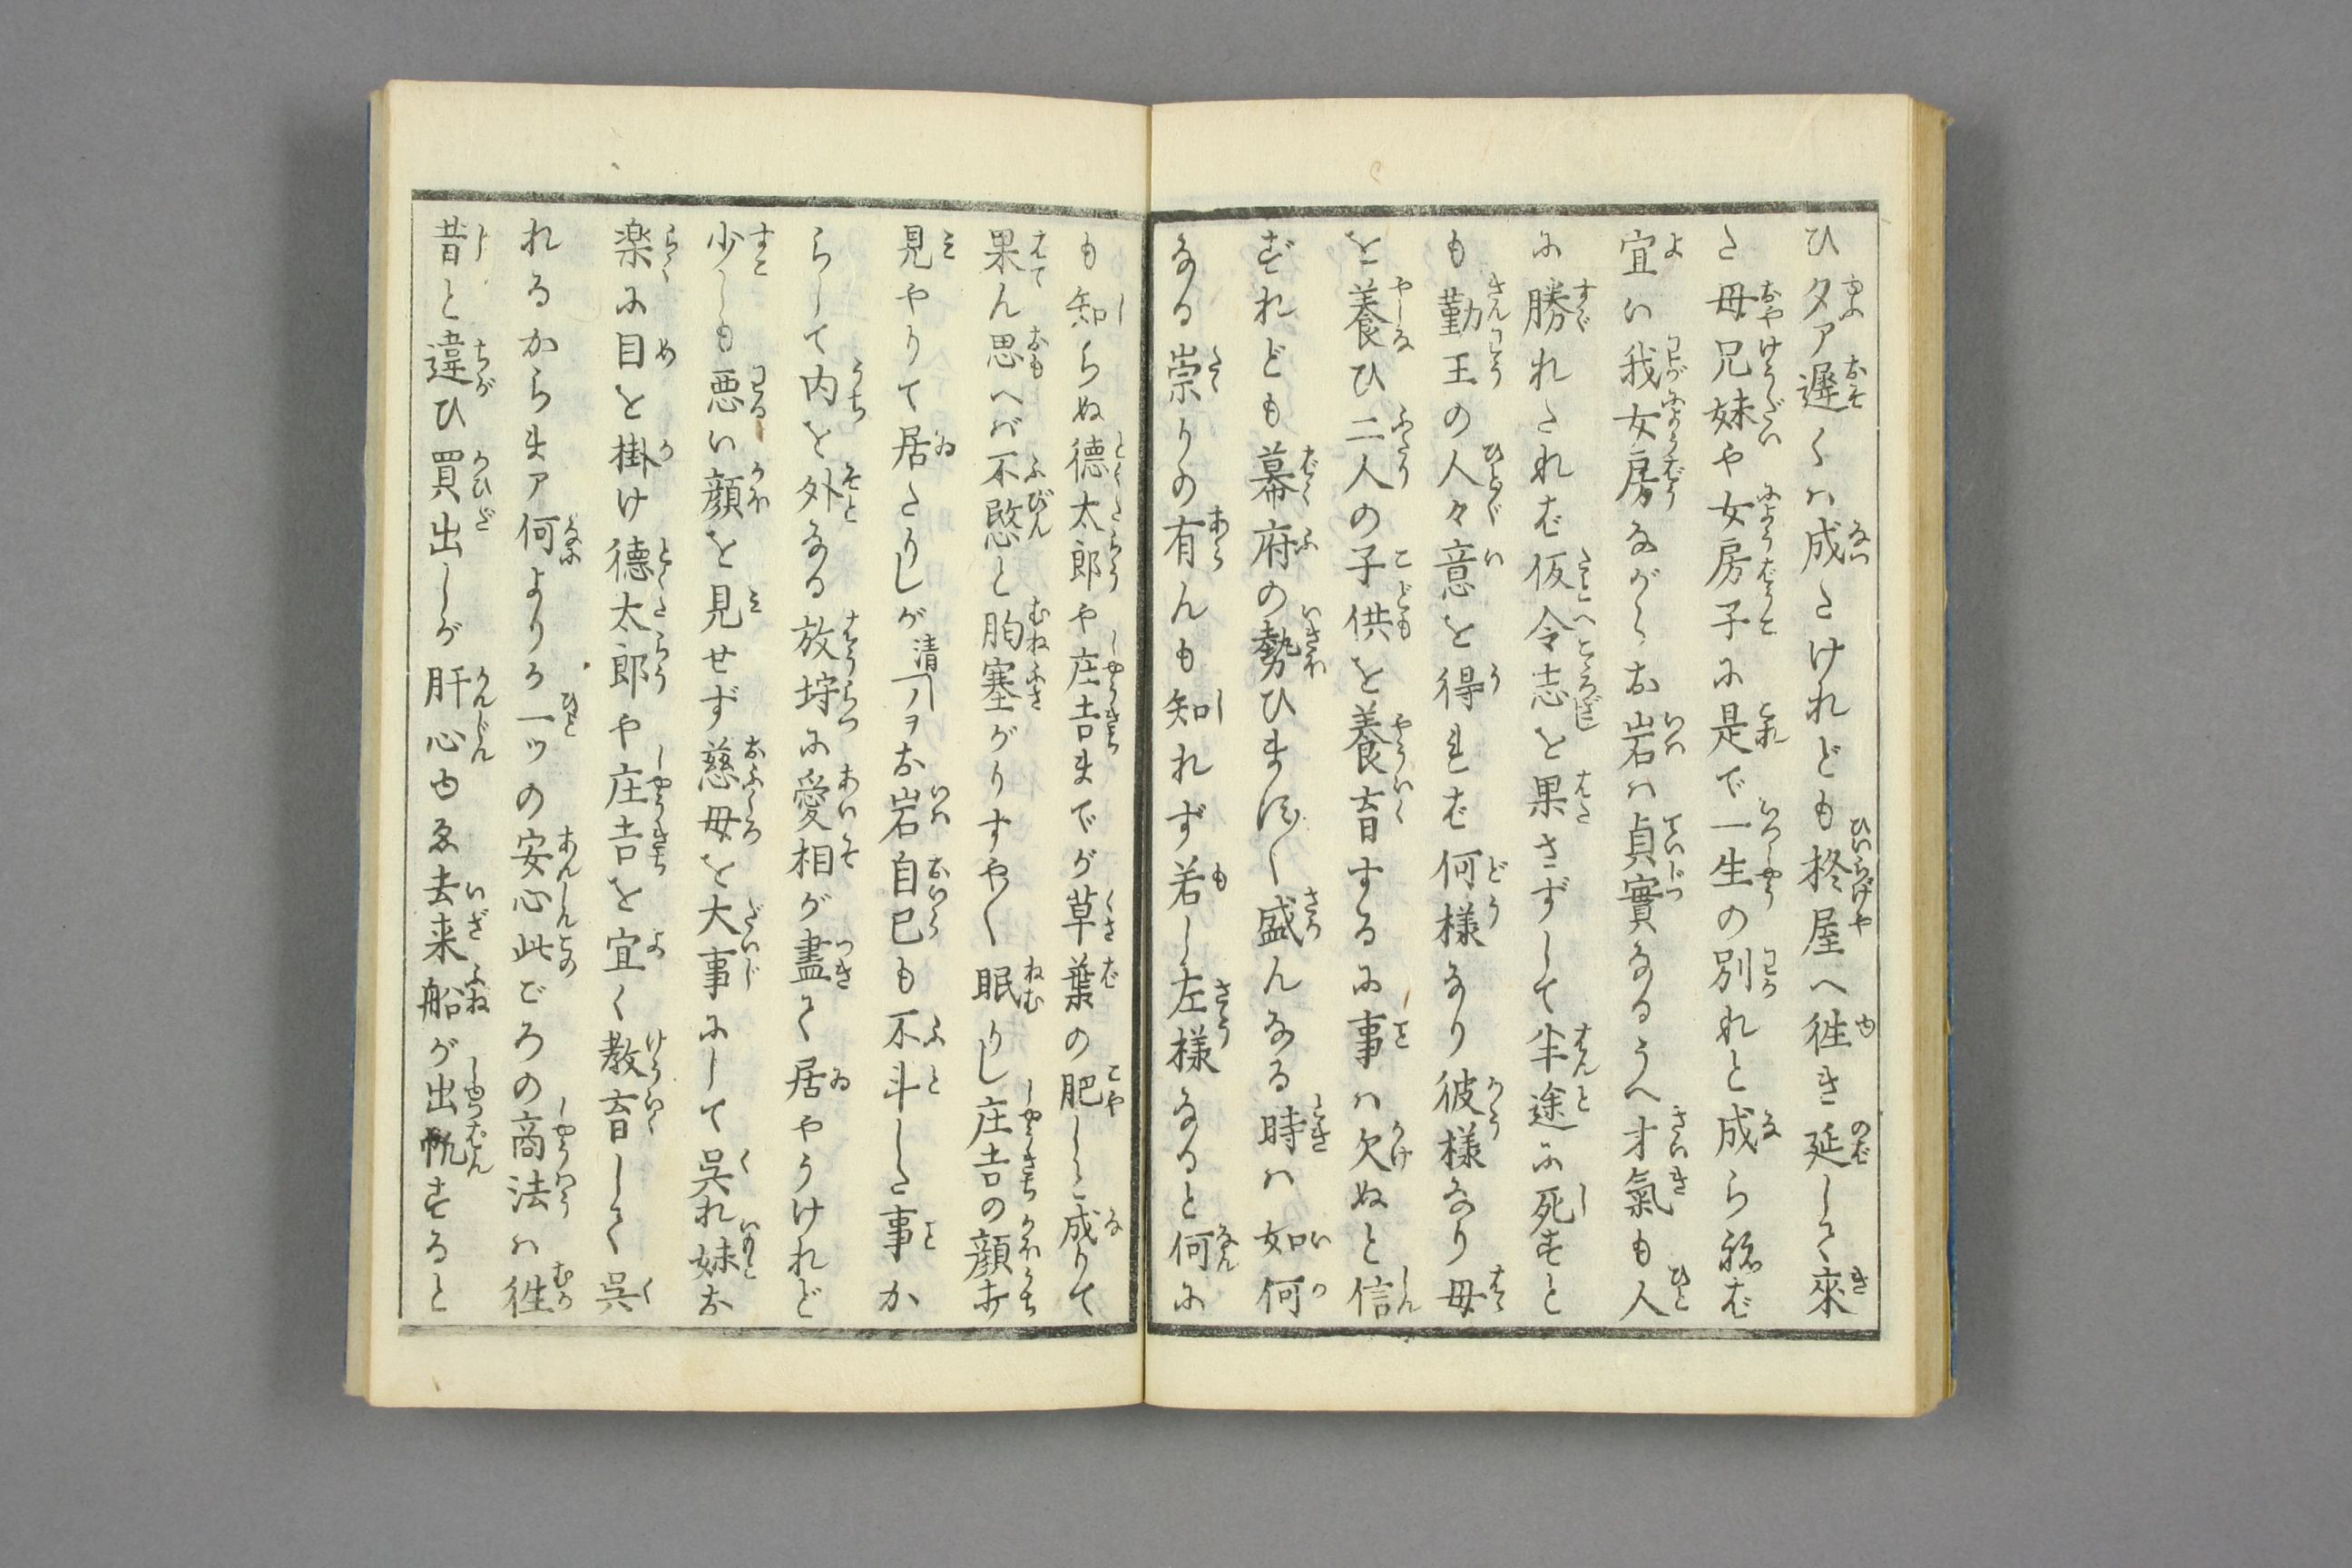 ひ夕ア遅くハ成たけれども柊屋へ徃き延して來
た母兄妹や女房子に是で一生の別れと成ら祢ば
宜い我女房ながらお岩ハ貞實なるうへ才氣も人
に勝れたれば仮令志を果さずして半途に死すと
も勤王の人々意を得れば何様なり彼様なり母
を養ひ二人の子供を養育するに事ハ欠ぬと信
ずれども幕府の勢ひます〳〵盛んなる時ハ如何
なる崇りの有んも知れず若し左様なると何に
も知らぬ德太郎や庄吉までが草葉の肥しと成りて
果ん思へバ不愍と胸塞がりすや〳〵眠りし庄吉の顔打
見やりて居たりしが 清一 ヲお岩自己も不斗した事か
らして内を外なる放埒に愛相が盡て居やうけれど
少しも悪い顔を見せず慈母を大事にして呉れ妹お
楽に目を掛け德太郎や庄吉を宜く教育して呉
れるからまア何よりか一ツの安心此ごろの商法ハ徃
昔と違ひ買出しが肝心ゆゑ去来船が出帆すると